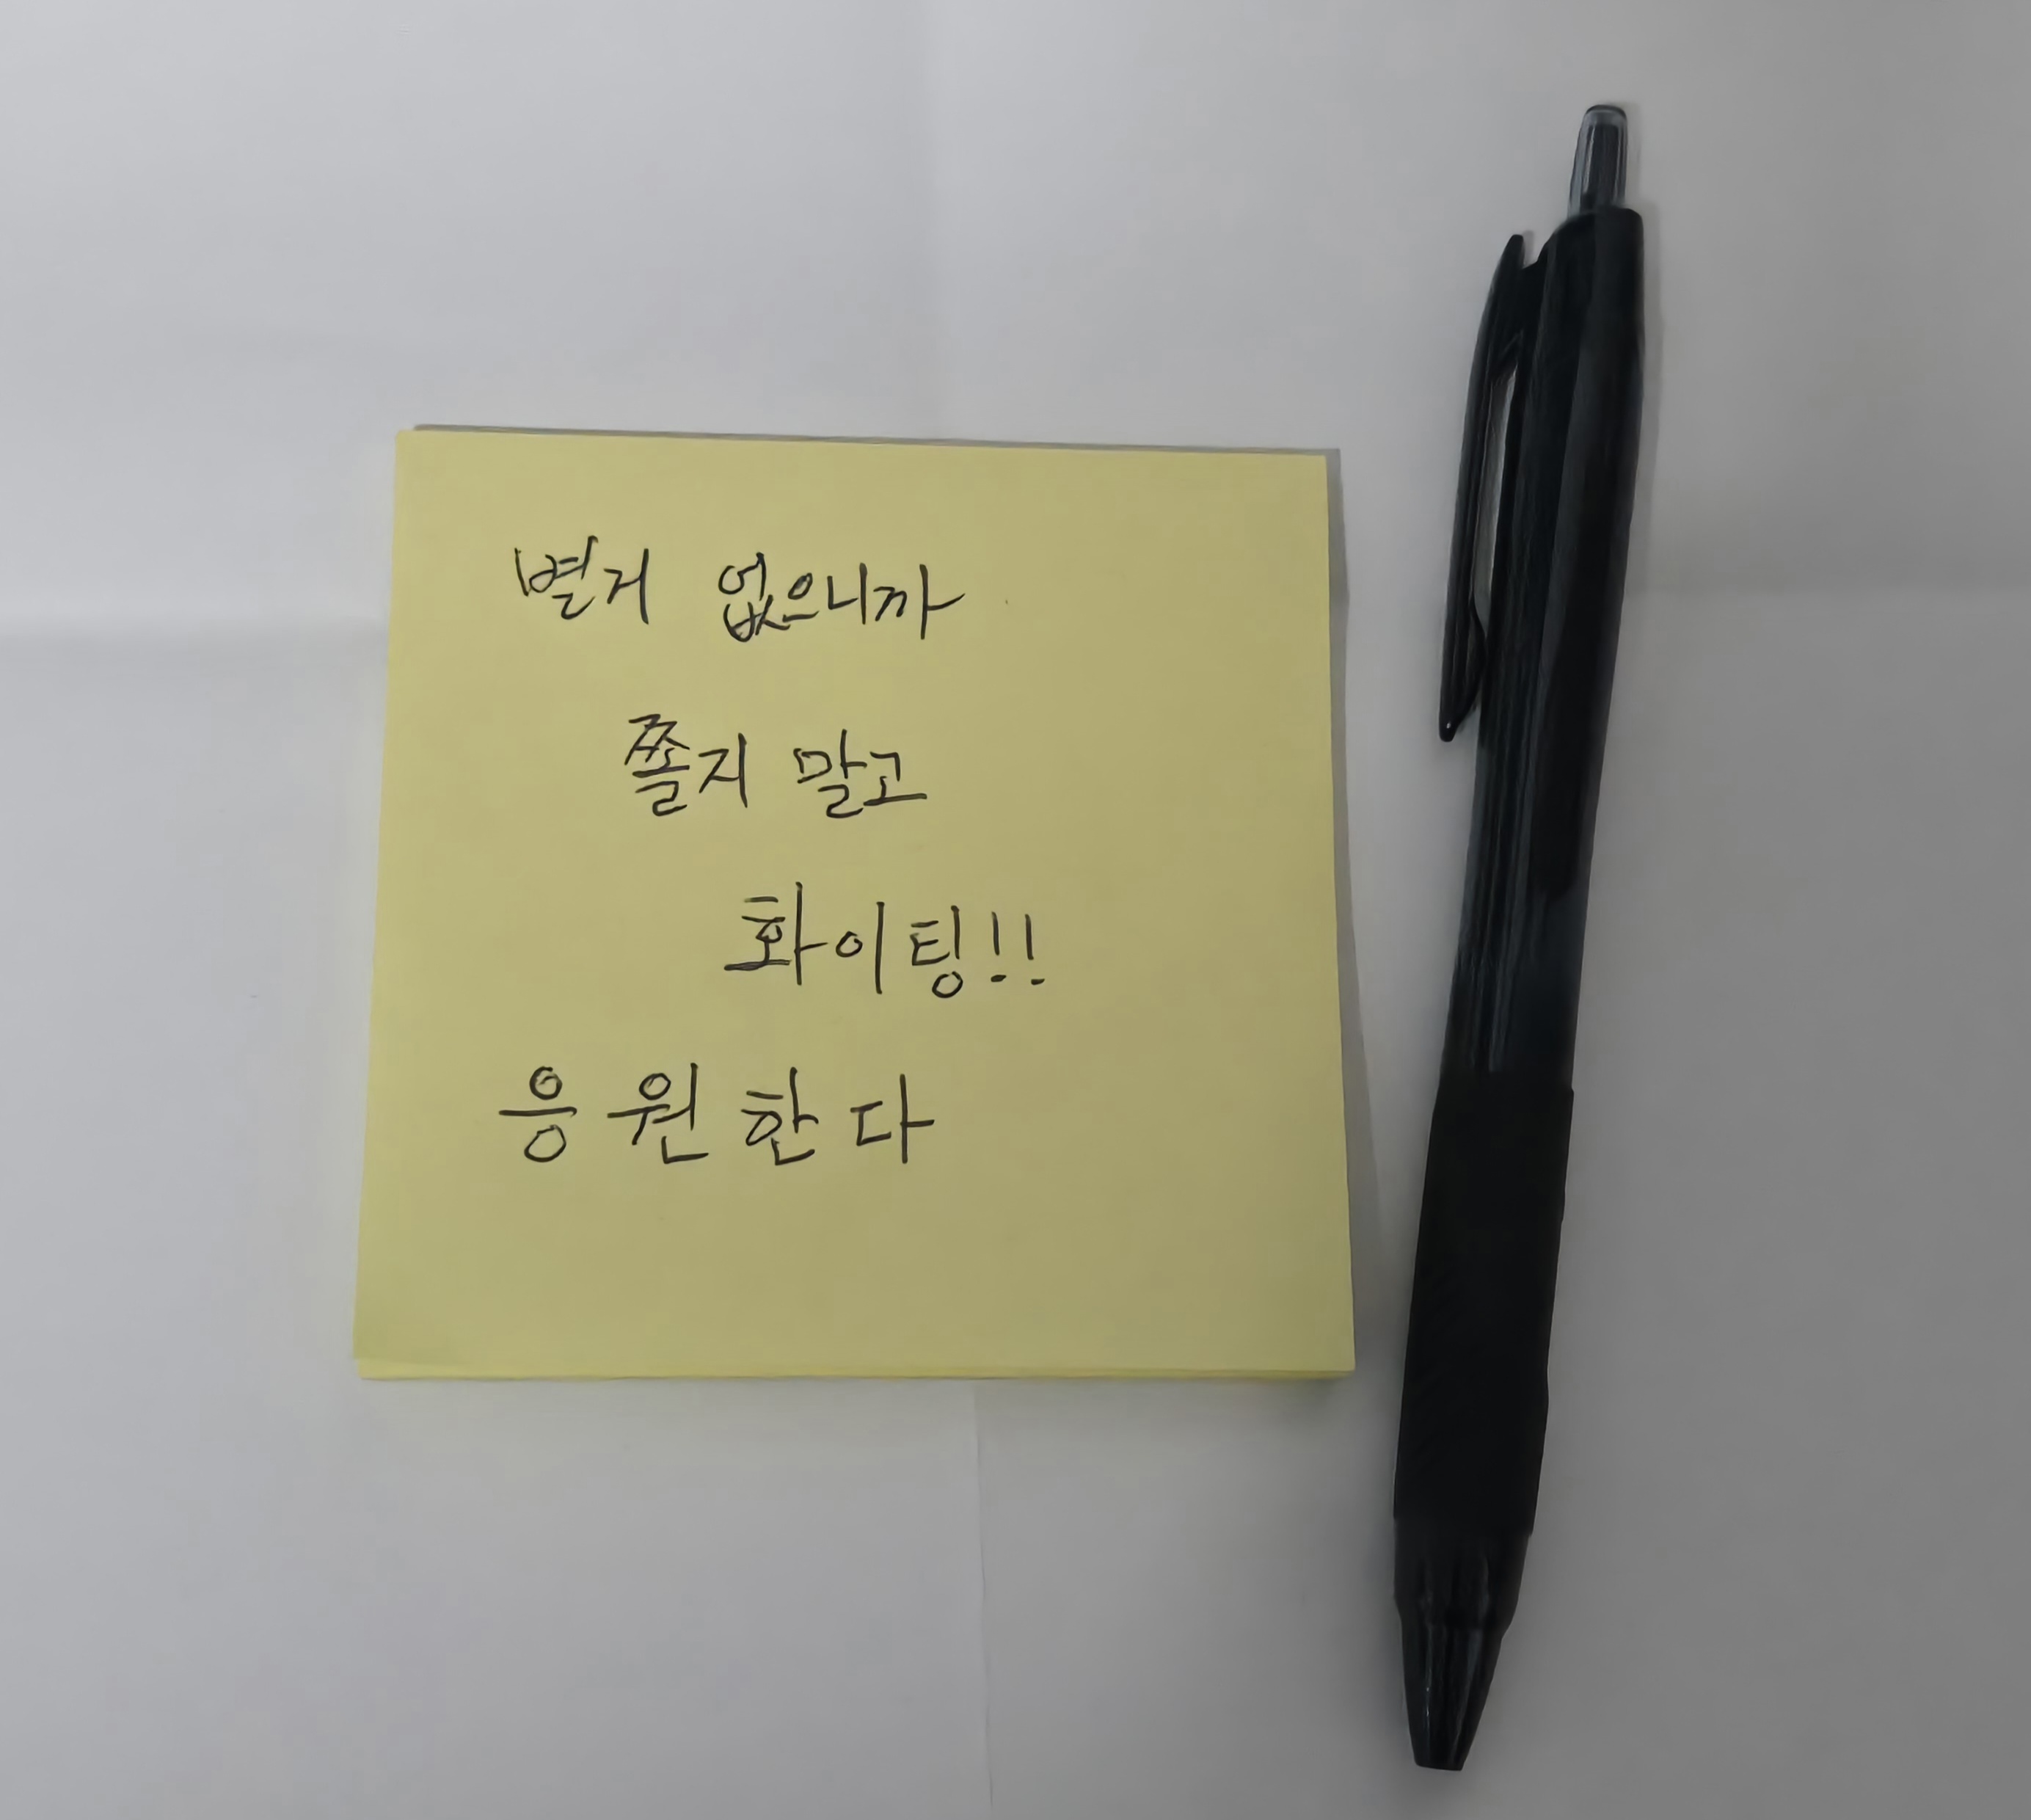 별거 없으니까
쫄지 말고
화이팅!!
응원한다